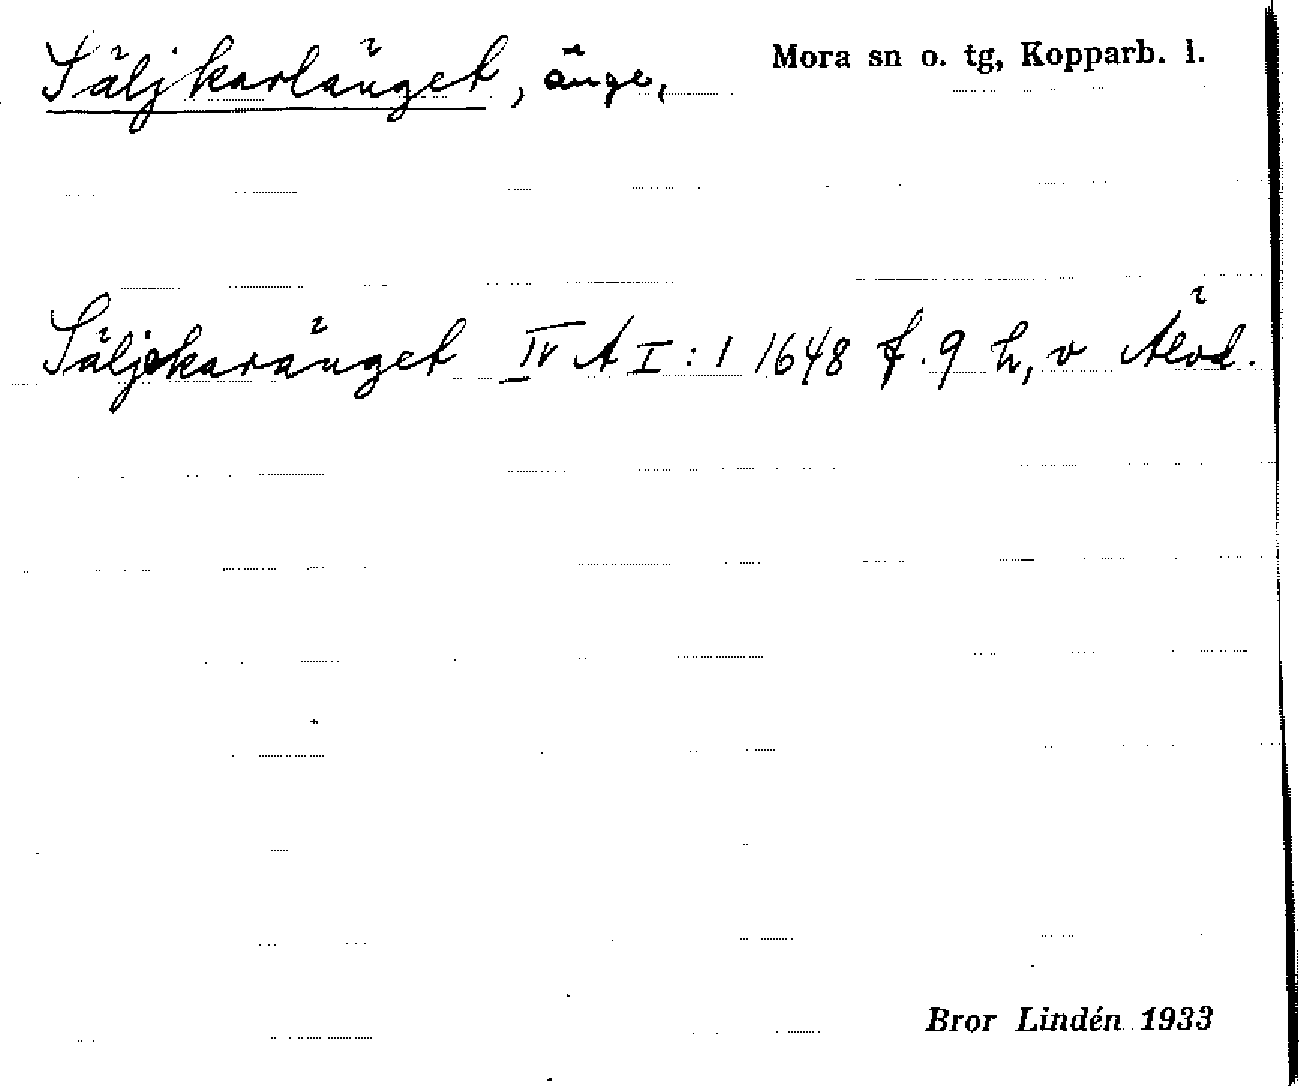 Säljkarlänget, änge, Mora sn o. tg, Kopparb. l.
Säljekaränget IV A I:1 1648 f. 9 h, v Älvd.
Bror Lindén 1933